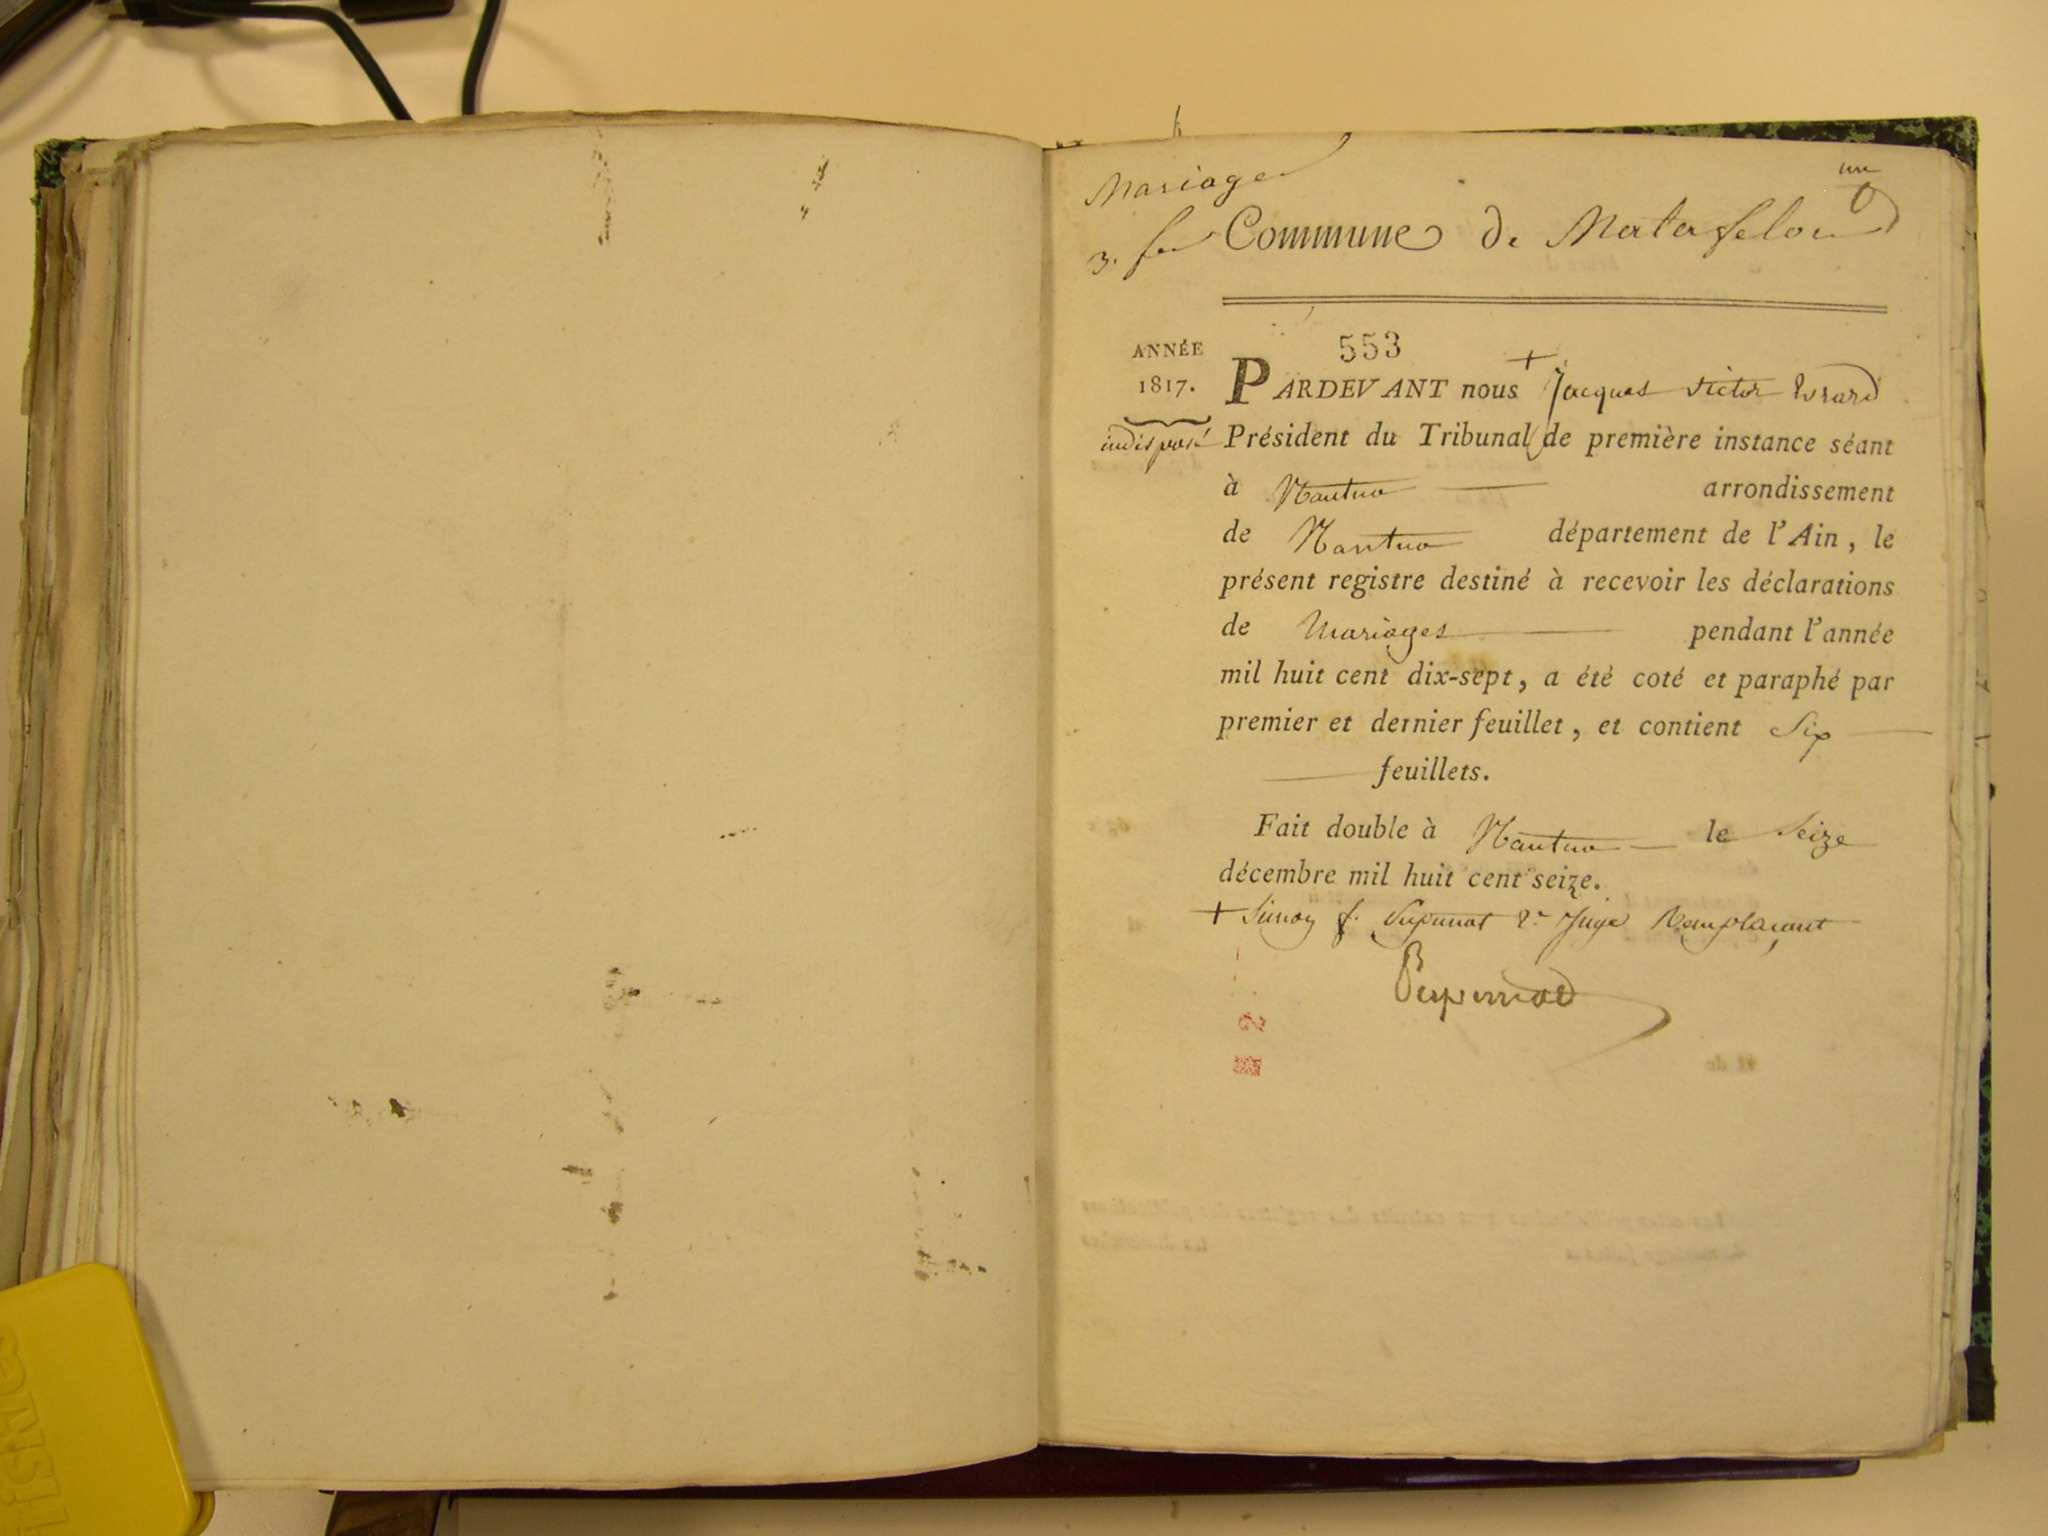 Mariage
un
3. fe Commune de Matafelon
553
ANNÉE
1817.
PARDEVANT nous + Jacques Victor Evrard
indisposé
Président du Tribunal de première instance séant
à Nantua arrondissement
de Nantua département de l'Ain, le
présent registre destiné à recevoir les déclarations
de Mariages pendant l'année
mil huit cent dix-sept, a été coté et paraphé par
premier et dernier feuillet, et contient Six
feuillets.
Fait double à Nantua le Seize
décembre mil huit cent seize.
+ Simon f. 2e Juge Remplaçant
2
et de